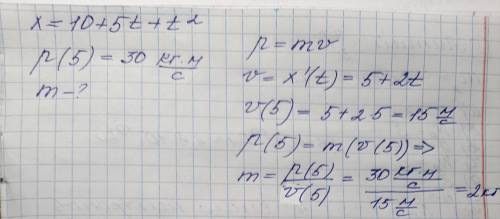 x = 10 + 5t + t²
p(5) = 30 кг·м/с
m - ?
p = mv
v = x'(t) = 5 + 2t
v(5) = 5 + 2 5 = 15 м/с
p(5) = m(v(5)) =>
m = p(5)/v(5) = 30 кг·м/с / 15 м/с = 2 кг